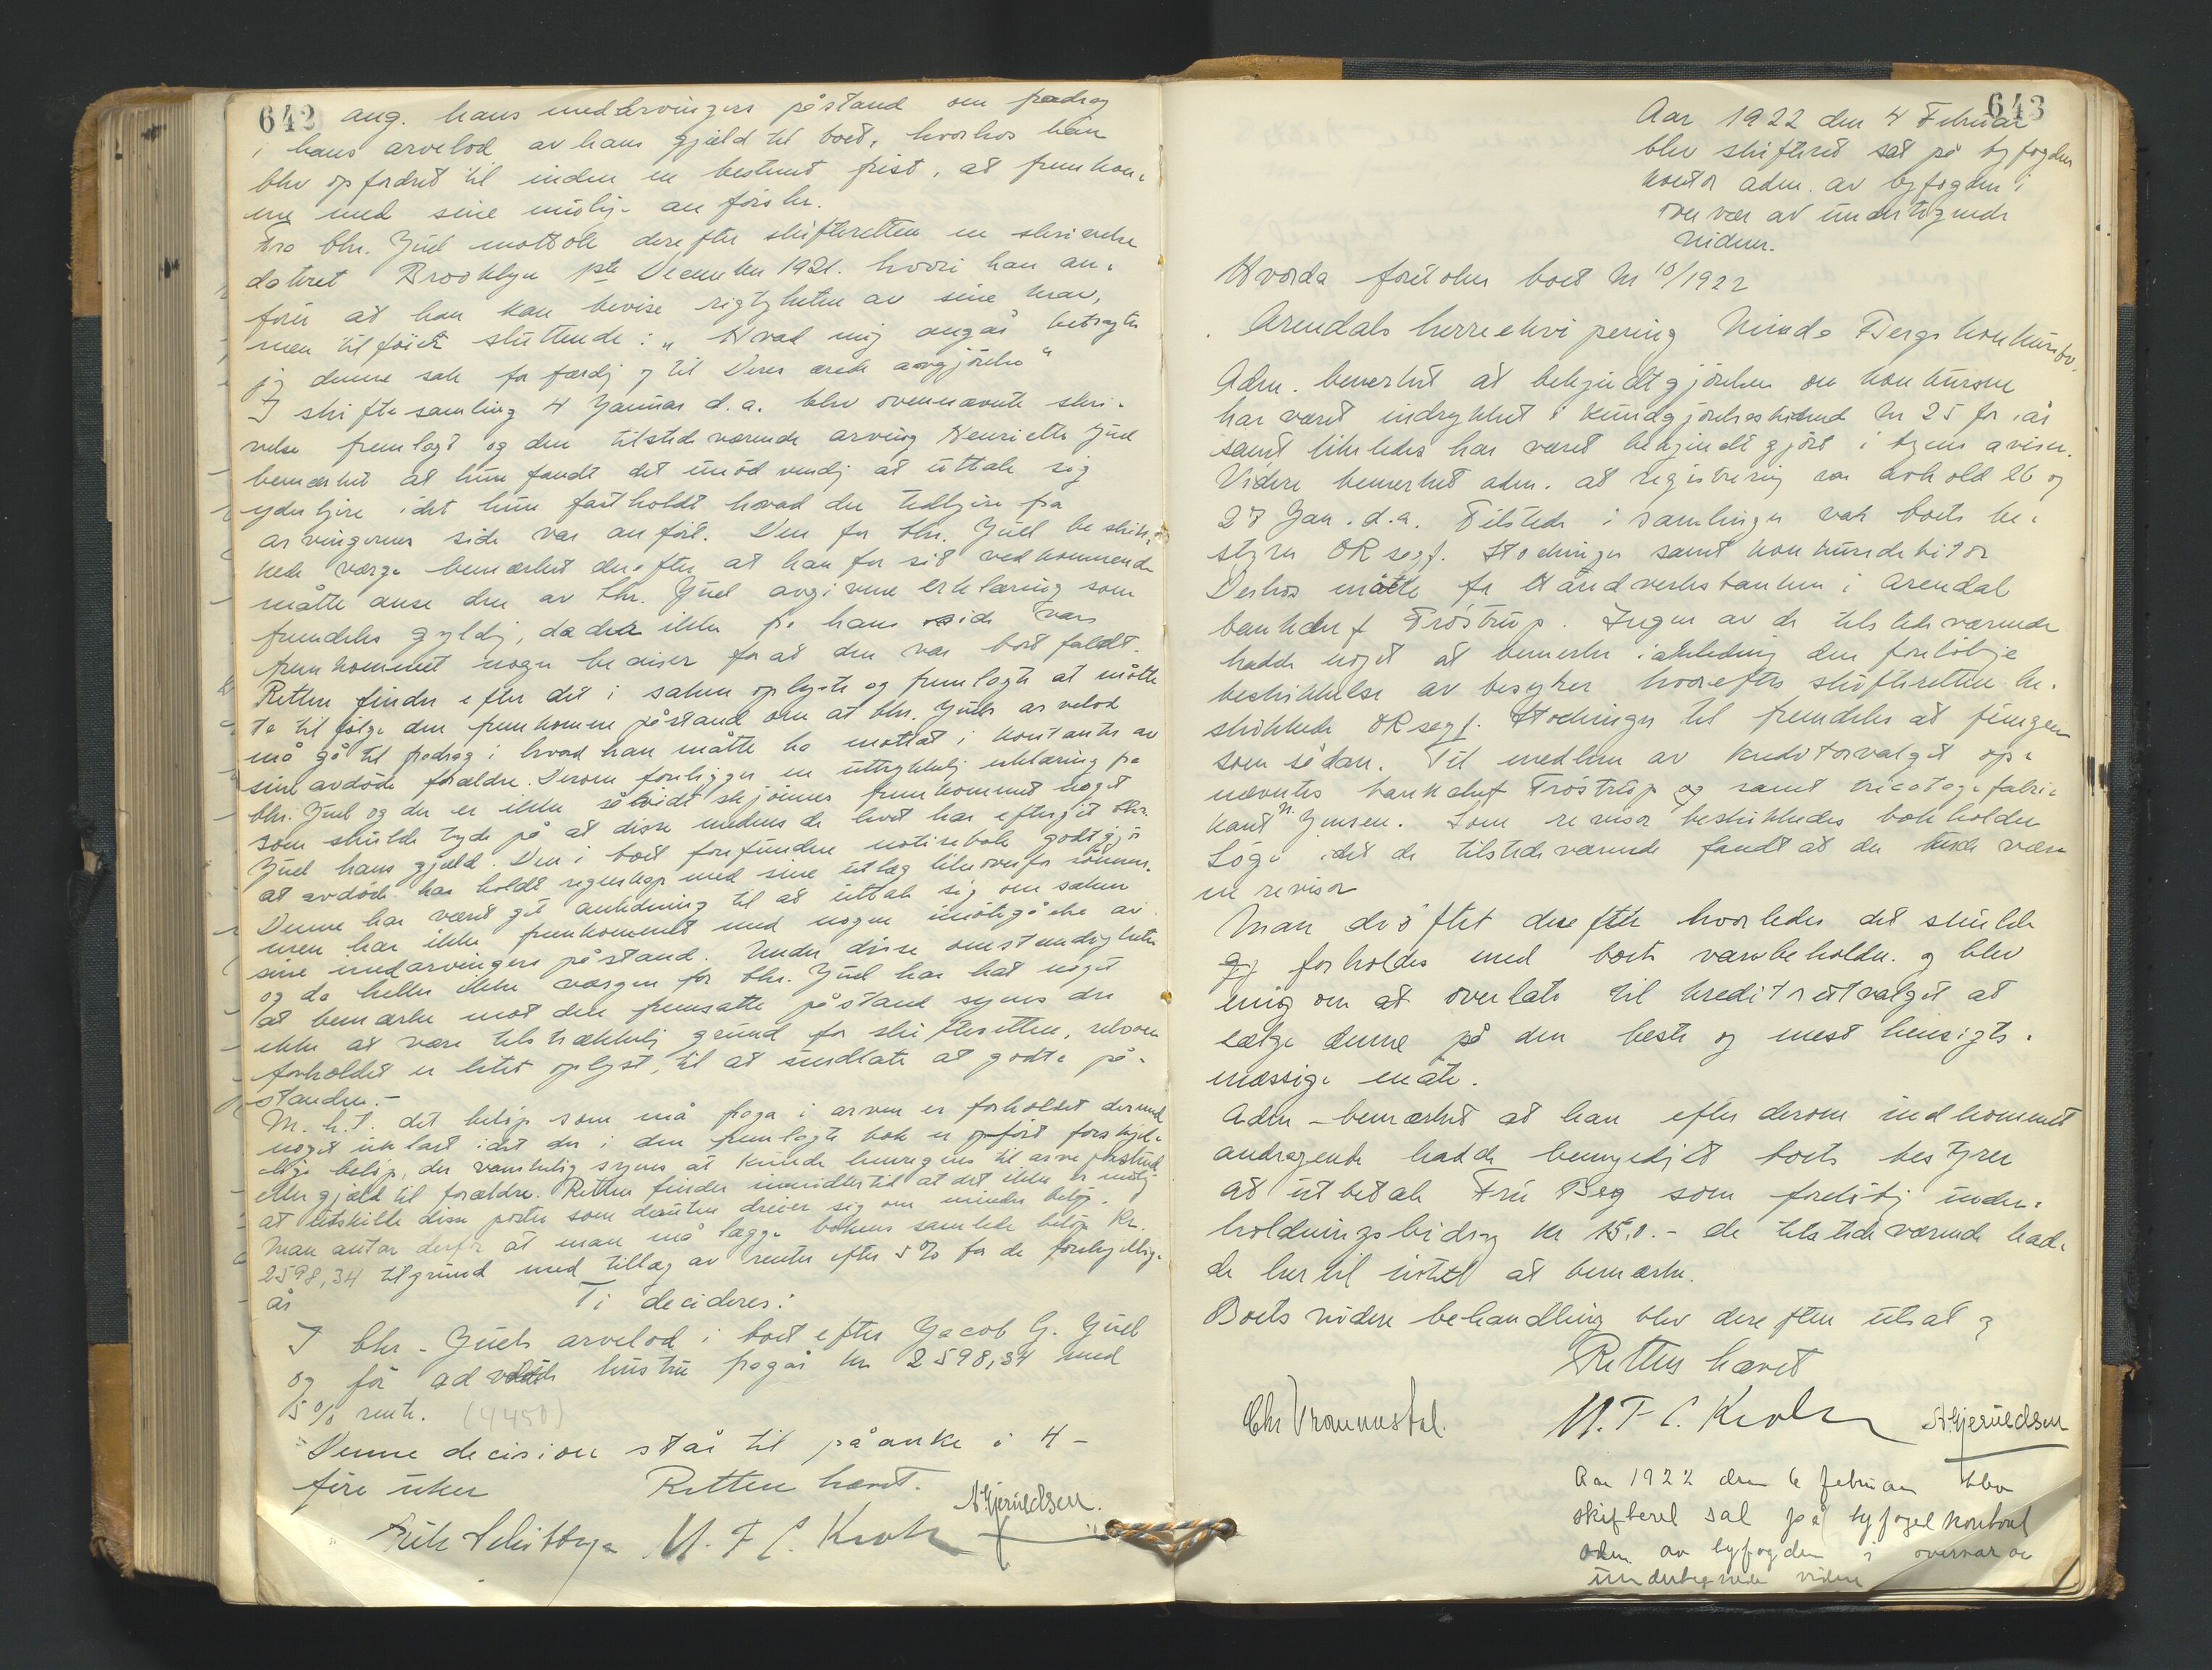 642
ang. hans medarvingers påstand om fradrag
i hans arvelod av hans gjæld til boet, hvorhos han
blev opfordret til inden en bestemt frist, at fremkom-
me med sine mulig- anførsler.
Fra Chr. Juel mottok derefter skifteretten en skrivelse
dateret Brooklyn 1ste December 1921. hvori han an-
fører at han kan bevise rigtigheten av sine krav,
men tilføiet sluttende: „Hvad mig angår betragter
jeg denne sak for færdig og til Deres ærede avgjörelse"
I skiftesamling 4 Januar d.a. blev ovennævnte skri-
velse fremlagt og den tilstedeværende arving Henriette Juel
bemærket at hun fandt det unödvendig at uttale sig
yderligere idet hun fastholdt hvad der tidligere fra
arvingernes side var anført. Den for Chr. Juel beskik-
kede værge bemærket derefter at han for sit vedkommende
måtte anse den av Chr. Juel avgivne erklæring som
fremdeles gyldig, da der ikke fra hans side var
fremkommet nogen beviser for at den var bortfaldt.
Retten finder efter det i saken oplyste og fremlagte at måtte
ta til følge den fremkomne påstand om at Chr. Juels arvelod
må gå til fradrag i hvad han måtte ha mottat i kontanter av
sine avdöde forældre. Derom foreligger en uttrykkelig erklæring fra
Chr. Juel og der er ikke såvidt skjönnes fremkommet noget
som skulde tyde på at disse medens de levet har eftergit Chr.
Juel hans gjæld. Den i boet forefundne notisebok godtgjör
at avdöde har holdt regnskap med sine utlæg likeoverfor sönnen.
Denne har været git anledning til at uttale sig om saken
men har ikke fremkommet med nogen imötegåelse av
sine medarvingers påstand. Under disse omstændigheter
og da heller ikke værgen for Chr. Juel har hat noget
at bemærke mot den fremsatte påstand synes der
ikke at være tilstrækkelig grund for skifteretten, selvom
forholdet er litet oplyst, til at undlate at godta på-
standen.-
M. h. t. det belöp som må fragå i arven er forholdet dermed
noget uklart idet der i den fremlagte bok er opført forskjel-
lige belöp, der vanskelig synes at kunde henregnes til arveforskud
eller gjæld til forældre. Retten finder imidlertid at det ikke er mulig
at utskille disse poster som desuten dreier sig om mindre belöp.
Man antar derfor at man må lægge bokens samlede belöp Kr.
2598,34 til grund med tillæg av renter efter 5 % for de forskjellige
år
Ti decideres:
I Chr. Juels arvelod i boet efter Jacob G. Juel
og før avdöde hustru fragår kr 2598,34 med
5 % rente. (4450)
Denne decision står til påanke i 4 -
fire uker
Retten hævet.
M. F. C. Krohn
A Gjeruldsen.
643
Aar 1922 den 4 Februar
blev skifteret sat på byfogdens
kontor adm. av byfogden i
overvær av undertegnede
vidner.
Hvorda foretokes boet Nr 10/1922
Arendals herreekvipering Minda Bergs konkursbo.
Adm. bemerket at bekjendtgjörelse om konkursen
har været indrykket i Kundgjörelsestidende Nr 25 for iår
samt likeledes har været bekjendtgjört i byens aviser.
Videre bemerket adm. at registrering var avholdt 26 og
27 Jan. d.a. Tilstede i samlingen var boets be-
styrer ORsagf. Stockinger samt konkursdebitor
Desuten møtte for Håndverksbanken i Arendal
bankchef Fröstrup. Ingen av de tilstedeværende
hadde noget at bemerke i anledning den forelöbige
beskikkelse av bestyrer hvorefter skifteretten be-
skikkede ORsagf. Stockinger til fremdeles at fungere
som sådan. Til medlem av kreditorvalget op-
nævntes bankchef Fröstrup og samt tricotagefabri-
kant N. Jensen. Som revisor beskikkedes bokholder
Löge idet de tilstedeværende fandt at der burde være
en revisor
Man dröftet derefter hvorledes det skulde
gj forholdes med boets varebeholdn. og blev
enig om at overlate til kreditorutvalget at
sælge denne på den beste og mest hensigts-
mæssige måte.
Adm - bemærket at han efter derom indkommet
andragende hadde bemyndiget boets bestyrer
at utbetale Fru Berg som forelöbig under-
holdningsbidrag kr 150.- de tilstedeværende had-
de hertil intet at bemærke.
Boets videre behandling blev derefter utsat og
Retten hævet
Chr Vrommestal.
M. F. C. Krohn
A Gjeruldsen
Aar 1922 den 6 februar blev
skifteret sat på byfoged kontoret
adm. av byfogden i overvær av
undertegnede vidner